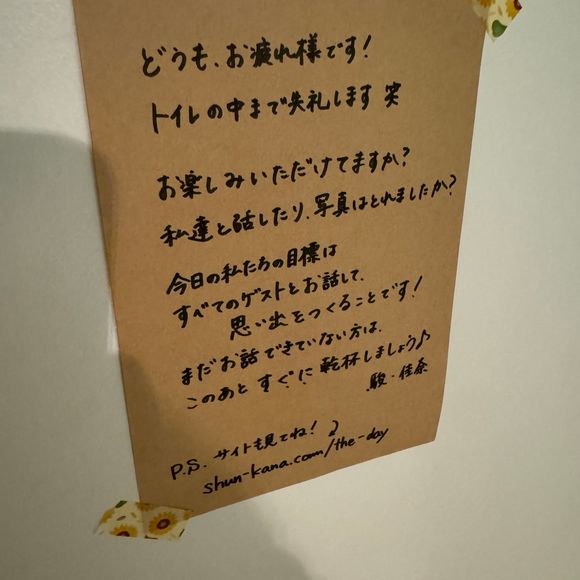 どうも、お疲れ様です！
トイレの中まで失礼します 笑
お楽しみいただけてますか？
私達と話したり、写真はとれましたか？
今日の私たちの目標は
すべてのゲストとお話して、
思い出をつくることです！
まだお話できていない方は、
このあと すぐに 乾杯しましょう♪
駿・佳奈
P.S. サイトも見てね！
shun-kana.com/the-day